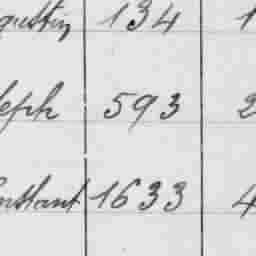 gustin 134 1
seph 593 2
nstant 1633 4